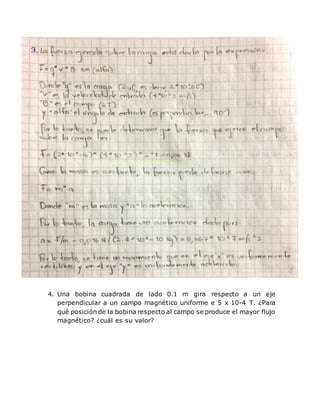 3. La fuerza ejercida sobre la carga está dada por la expresión:
F = q * v * B * sen (alfa)
Donde "q" es la carga (2uC, es decir 2*10^-6C)
"v" es la velocidad de entrada (4*10^3 m/s)
"B" es el campo (2T)
y "alfa" el ángulo de entrada (es perpendicular... 90°)
Por lo tanto, se puede determinar que la fuerza que ejerce el campo
sobre la carga es:
F = (2*10^-6) * (4*10^3) * 2 * 1 = 0,016 N
Como la masa es constante, la fuerza puede definirse como:
F = m * a
Donde "m" es la masa y "a" la aceleracion.
Por lo tanto, la carga tiene una aceleracion dada por:
a = F/m = 0,016 N / (2.4*10^-10 kg) = 6,667 * 10^7 m/s^2
Por lo tanto, se tiene un movimiento que en el eje "x" es uniformemente
rectilíneo y en el eje "y" es uniformemente acelerado.
4. Una bobina cuadrada de lado 0.1 m gira respecto a un eje
perpendicular a un campo magnético uniforme e 5 x 10-4 T. ¿Para
qué posición de la bobina respecto al campo se produce el mayor flujo
magnético? ¿cuál es su valor?